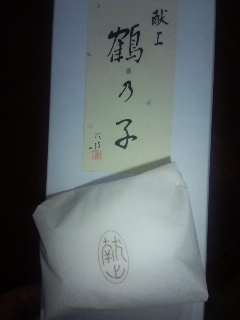 献上
鶴乃子
献上